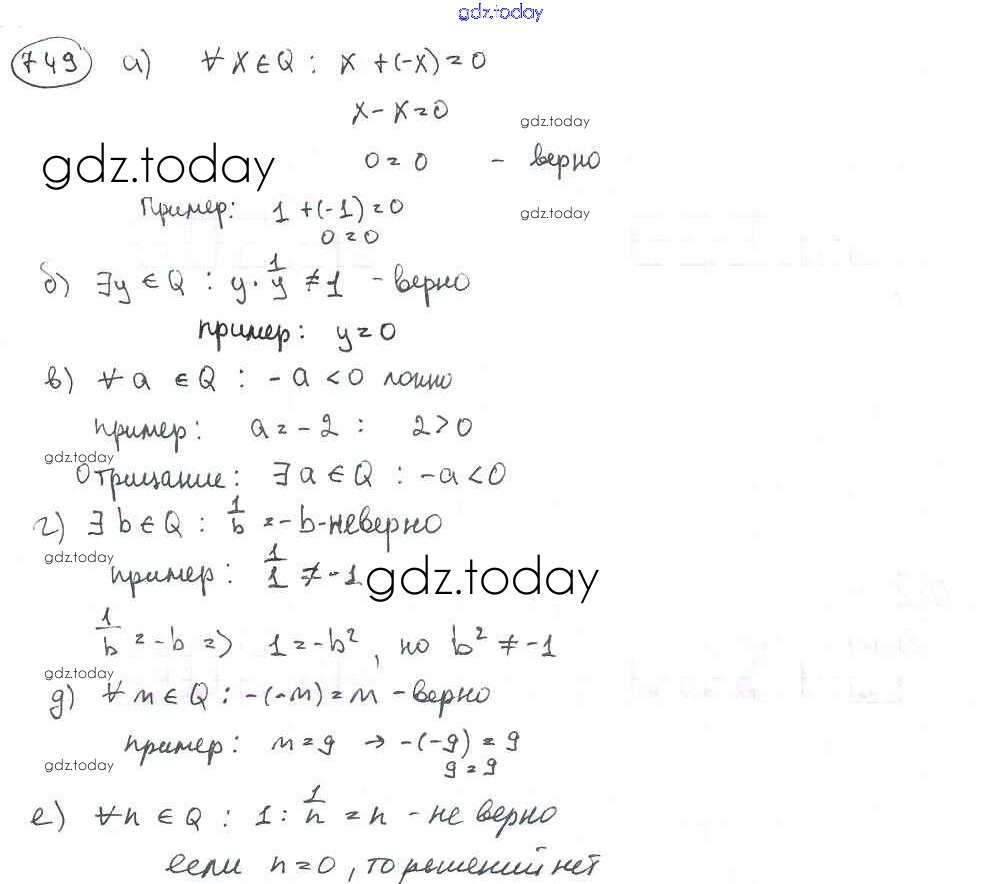 gdz.today
749 а) ∀ x ∈ Q : x + (-x) = 0
x - x = 0
gdz.today
0 = 0 - верно
gdz.today
Пример: 1 + (-1) = 0
gdz.today
0 = 0
б) ∃y ∈ Q : y · 1/y ≠ 1 - верно
пример: y = 0
в) ∀ a ∈ Q : - a < 0 ложно
пример: a = - 2 : 2 > 0
gdz.today
Отрицание: ∃ a ∈ Q : -a < 0
г) ∃ b ∈ Q : 1/b = - b - неверно
gdz.today
пример: 1/1 ≠ - 1
gdz.today
1/b = - b => 1 = - b², но b² ≠ -1
gdz.today
д) ∀ m ∈ Q : -(-m) = m - верно
пример: m = 9 → -(-9) = 9
gdz.today
9 = 9
е) ∀ n ∈ Q : 1 : 1/n = n - не верно
если n = 0, то решений нет